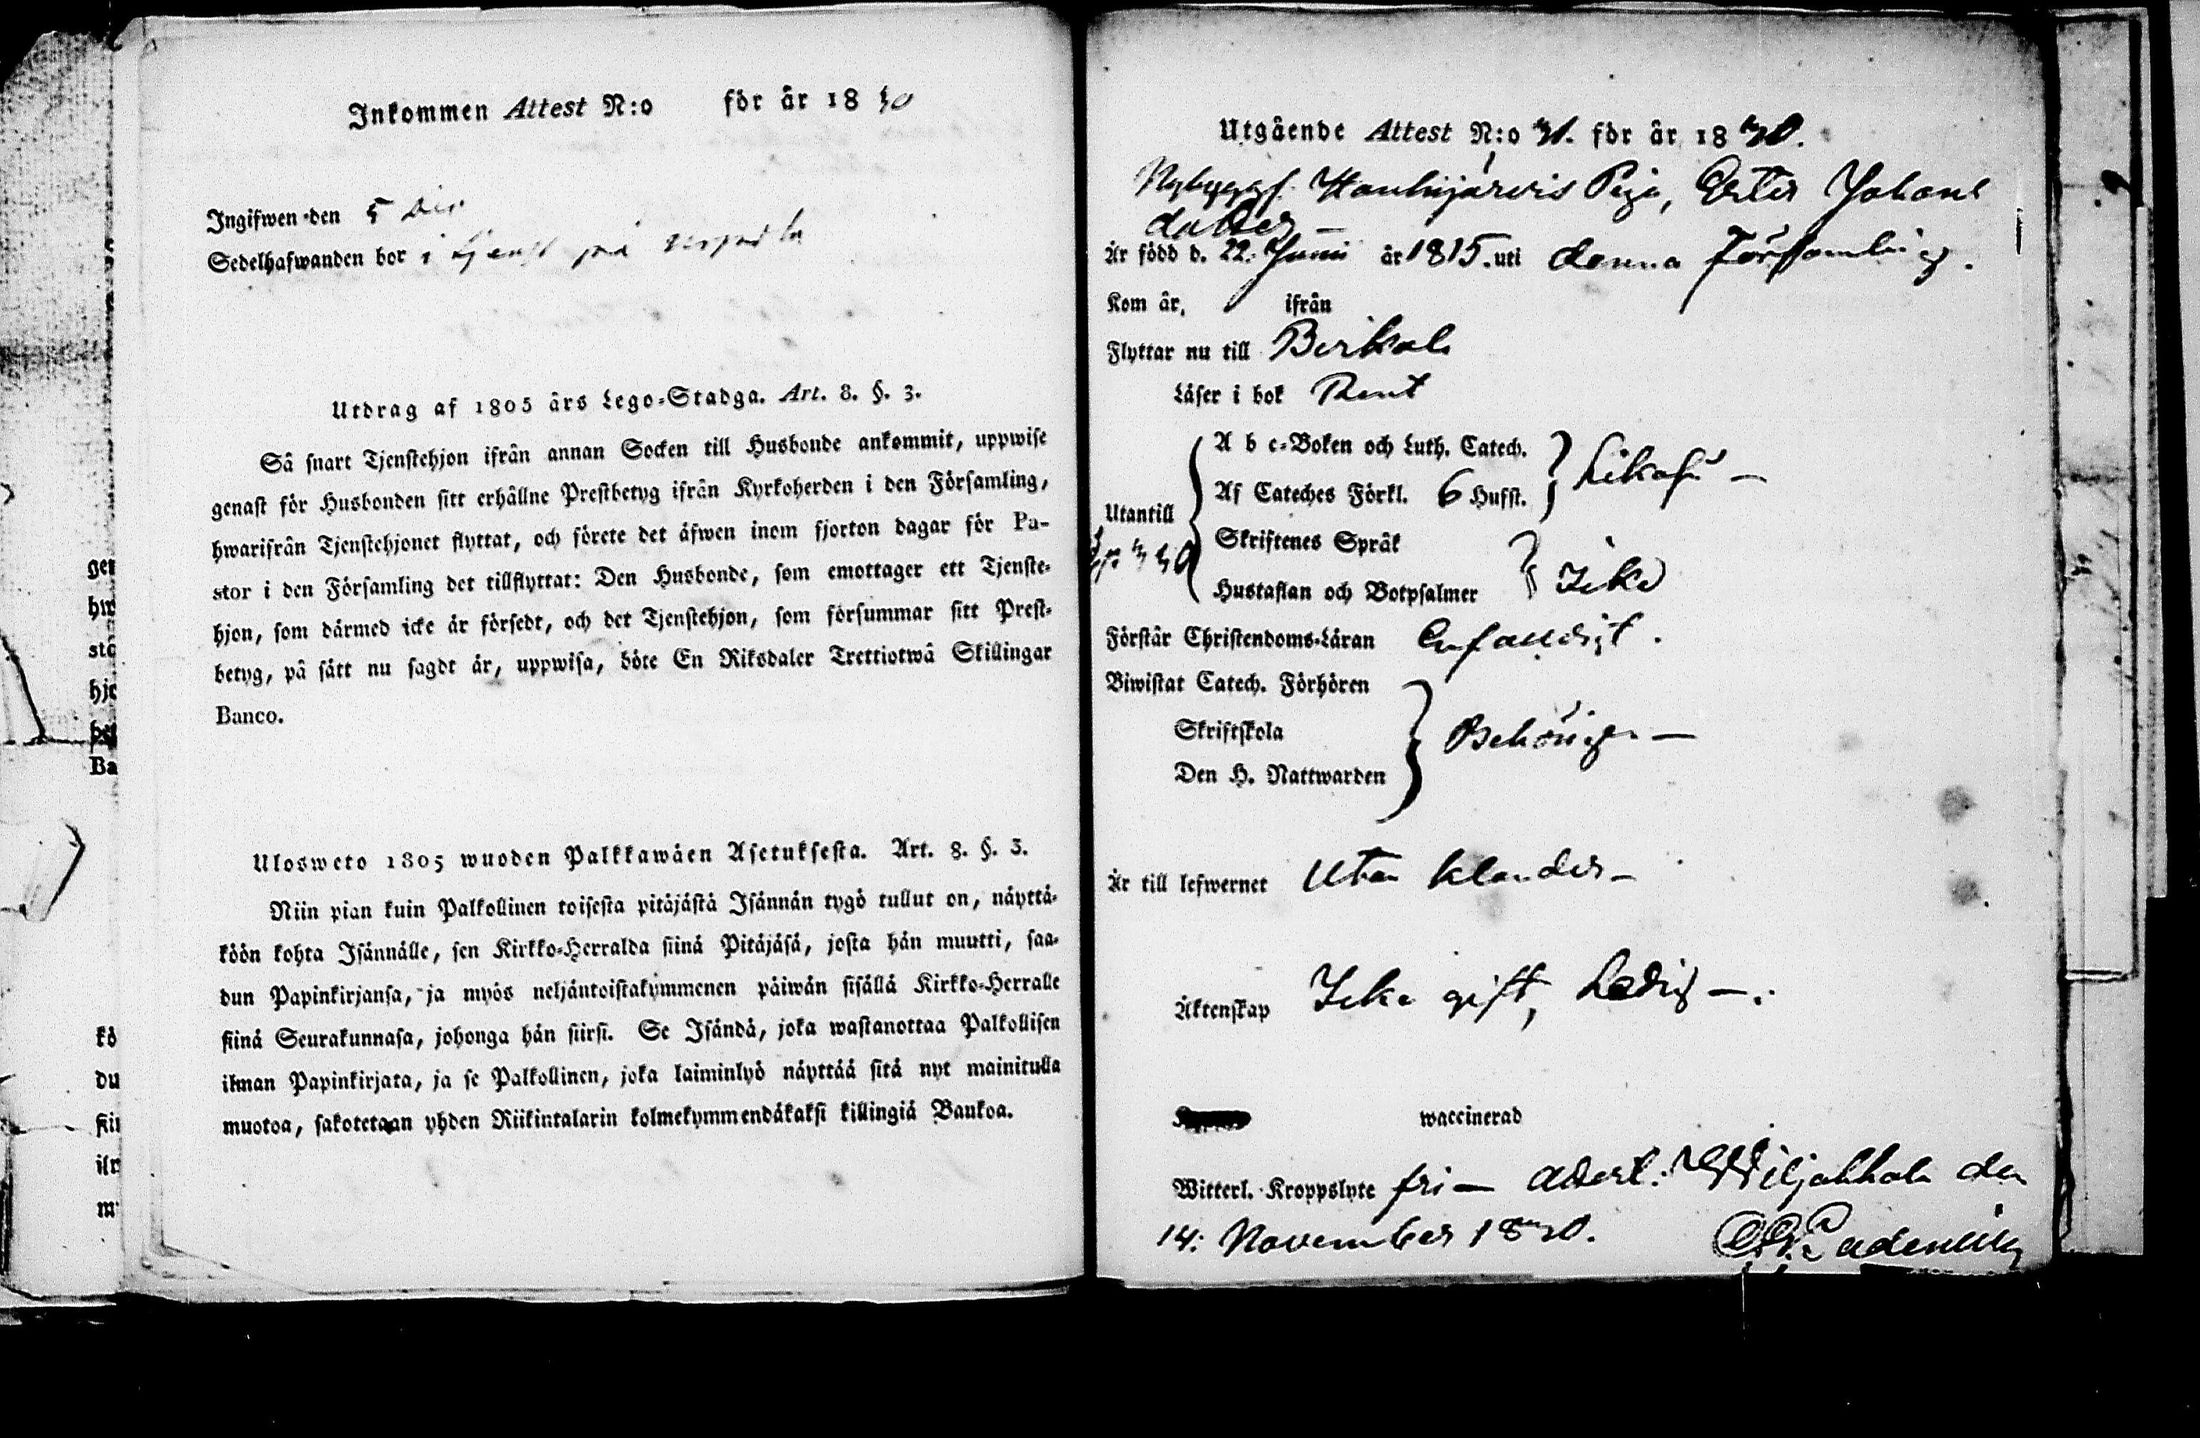 Inkommen Attest N:o för år 1840
Ingifwen den 5 Dec
Sedelhafwanden bor i tjenst på
Utdrag af 1805 års Lego-Stadga. Art. 8. §. 3.
Så snart Tjenstehjon ifrån annan Socken till Husbonde ankommit, uppwise
genast för Husbonden sitt erhållne Prestbetyg ifrån Kyrkoherden i den Församling,
hwarifrån Tjenstehjonet flyttat, och förete det äfwen inom fjorton dagar för Pa-
stor i den Församling det tillflyttat: Den Husbonde, som emottager ett Tjenste-
hjon, som därmed icke är försedt, och det Tjenstehjon, som försummar sitt Prest-
betyg, på sätt nu sagdt är, uppwisa, böte En Riksdaler Trettiotwå Skillingar
Banco.
Ulosweto 1805 wuoden Palkkawäen Asetuksesta. Art. 8. §. 3.
Niin pian kuin Palkollinen toisesta pitäjästä Isännän tygö tullut on, näyttä-
köön kohta Isännälle, sen Kirkko-Herralda siinä Pitäjäsä, josta hän muutti, saa-
dun Papinkirjansa, ja myös neljäntoistakymmenen päiwän sisällä Kirkko-Herralle
siinä Seurakunnasa, johonga hän siirsi. Se Isändä, joka wastanottaa Palkollisen
ilman Papinkirjata, ja se Palkollinen, joka laiminlyö näyttää sitä nyt mainitulla
muotoa, sakotetaan yhden Riikintalarin kolmekymmendäkaksi killingiä Baukoa.
Utgående Attest N:o 31. för år 1840.
Nybyggf. Haukijärvis Piga, Ester Johans
dotter
Är född d. 22. Junii år 1815. uti denna Församling.
Kom år, ifrån
Flyttar nu till Birkala
Läser i bok Rent
Utantill
A b c-Boken och Luth. Catech.
Af Cateches Förkl. 6 Hufst. Likaså
Skriftenes Språk
Hustaflan och Botpsalmer Icke
Förstår Christendoms-Läran Enfaldigt.
Biwistat Catech. Förhören
Skriftskola Behörigen
Den H. Nattwarden
Är till lefwernet Utan klander
Äktenskap Icke gift, Ledig
waccinerad
Witterl. Kroppslyte fri attest. Wiljakkala den
14: November 1840.